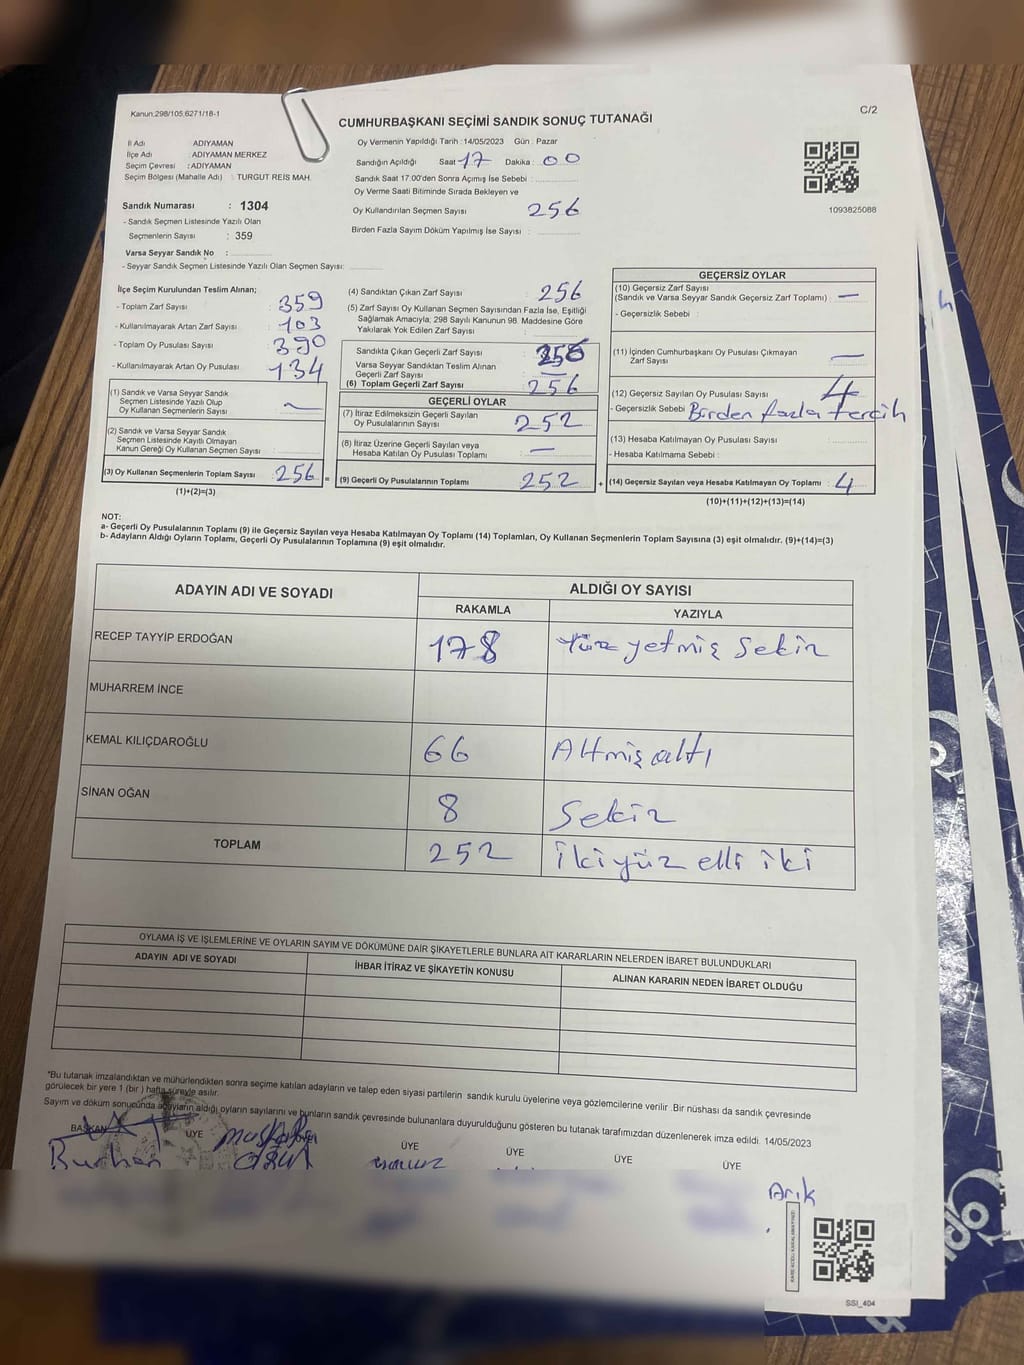 Kanun;298/105,6271/18-1
C/2
CUMHURBAŞKANI SEÇİMİ SANDIK SONUÇ TUTANAĞI
İl Adı ADIYAMAN
İlçe Adı : ADIYAMAN MERKEZ
Seçim Çevresi : ADIYAMAN
Seçim Bölgesi (Mahalle Adı) : TURGUT REİS MAH.
Sandık Numarası : 1304
- Sandık Seçmen Listesinde Yazılı Olan
Seçmenlerin Sayısı : 359
Varsa Seyyar Sandık No :
- Seyyar Sandık Seçmen Listesinde Yazılı Olan Seçmen Sayısı:
Oy Vermenin Yapıldığı Tarih :14/05/2023 Gün : Pazar
Sandığın Açıldığı Saat 17 Dakika : 00
Sandık Saat 17.00'den Sonra Açımış İse Sebebi :
Oy Verme Saati Bitiminde Sırada Bekleyen ve
Oy Kullandırılan Seçmen Sayısı 256
Birden Fazla Sayım Döküm Yapılmış İse Sayısı :
1093825088
İlçe Seçim Kurulundan Teslim Alınan;
- Toplam Zarf Sayısı : 359
- Kullanılmayarak Artan Zarf Sayısı : 103
- Toplam Oy Pusulası Sayısı : 390
- Kullanılmayarak Artan Oy Pusulası : 134
(1) Sandık ve Varsa Seyyar Sandık
Seçmen Listesinde Yazılı Olup
Oy Kullanan Seçmenlerin Sayısı : —
(2) Sandık ve Varsa Seyyar Sandık
Seçmen Listesinde Kayıtlı Olmayan
Kanun Gereği Oy Kullanan Seçmen Sayısı :
(3) Oy Kullanan Seçmenlerin Toplam Sayısı : 256 =
(1)+(2)=(3)
(4) Sandıktan Çıkan Zarf Sayısı : 256
(5) Zarf Sayısı Oy Kullanan Seçmen Sayısından Fazla İse, Eşitliği
Sağlamak Amacıyla; 298 Sayılı Kanunun 98. Maddesine Göre
Yakılarak Yok Edilen Zarf Sayısı :
Sandıkta Çıkan Geçerli Zarf Sayısı : 256
Varsa Seyyar Sandıktan Teslim Alınan
Geçerli Zarf Sayısı : —
(6) Toplam Geçerli Zarf Sayısı : 256
GEÇERLİ OYLAR
(7) İtiraz Edilmeksizin Geçerli Sayılan
Oy Pusulalarının Sayısı : 252
(8) İtiraz Üzerine Geçerli Sayılan veya
Hesaba Katılan Oy Pusulası Toplamı : —
(9) Geçerli Oy Pusulalarının Toplamı : 252 +
GEÇERSİZ OYLAR
(10) Geçersiz Zarf Sayısı
(Sandık ve Varsa Seyyar Sandık Geçersiz Zarf Toplamı) : —
- Geçersizlik Sebebi :
(11) İçinden Cumhurbaşkanı Oy Pusulası Çıkmayan
Zarf Sayısı : —
(12) Geçersiz Sayılan Oy Pusulası Sayısı : 4
- Geçersizlik Sebebi : Birden fazla tercih
(13) Hesaba Katılmayan Oy Pusulası Sayısı :
- Hesaba Katılmama Sebebi :
(14) Geçersiz Sayılan veya Hesaba Katılmayan Oy Toplamı : 4
(10)+(11)+(12)+(13)=(14)
NOT:
a- Geçerli Oy Pusulalarının Toplamı (9) ile Geçersiz Sayılan veya Hesaba Katılmayan Oy Toplamı (14) Toplamları, Oy Kullanan Seçmenlerin Toplam Sayısına (3) eşit olmalıdır. (9)+(14)=(3)
b- Adayların Aldığı Oyların Toplamı, Geçerli Oy Pusulalarının Toplamına (9) eşit olmalıdır.
ADAYIN ADI VE SOYADI ALDIĞI OY SAYISI
RAKAMLA YAZIYLA
RECEP TAYYİP ERDOĞAN 178 Yüz yetmiş Sekiz
MUHARREM İNCE
KEMAL KILIÇDAROĞLU 66 Altmış altı
SİNAN OĞAN 8 Sekiz
TOPLAM 252 İkiyüz elli iki
OYLAMA İŞ VE İŞLEMLERİNE VE OYLARIN SAYIM VE DÖKÜMÜNE DAİR ŞİKAYETLERLE BUNLARA AİT KARARLARIN NELERDEN İBARET BULUNDUKLARI
ADAYIN ADI VE SOYADI İHBAR İTİRAZ VE ŞİKAYETİN KONUSU ALINAN KARARIN NEDEN İBARET OLDUĞU
*Bu tutanak imzalandıktan ve mühürlendikten sonra seçime katılan adayların ve talep eden siyasi partilerin sandık kurulu üyelerine veya gözlemcilerine verilir .Bir nüshası da sandık çevresinde
görülecek bir yere 1 (bir ) hafta süreyle asılır.
Sayım ve döküm sonucunda adayların aldığı oyların sayılarını ve bunların sandık çevresinde bulunanlara duyurulduğunu gösteren bu tutanak tarafımızdan düzenlenerek imza edildi. 14/05/2023
BAŞKAN ÜYE ÜYE ÜYE ÜYE ÜYE
Burhan
Arık
SSI_404